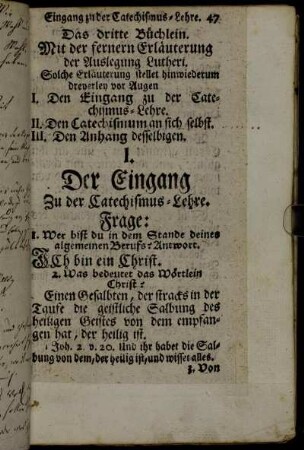 Eingang zu der Catechismus-Lehre. 47
Das dritte Büchlein.
Mit der fernern Erläuterung
der Auslegung Lutheri.
Solche Erläuterung stellet hinwiederum
dreyerley vor Augen
I. Den Eingang zu der Cate-
chismus-Lehre.
II. Den Catechismum an sich selbst.
III. Den Anhang desselbigen.
I.
Der Eingang
Zu der Catechismus-Lehre.
Frage:
1. Wer bist du in dem Stande deines
algemeinen Berufs? Antwort.
ICh bin ein Christ.
2. Was bedeutet das Wörtlein
Christ?
Einen Gesalbten, der stracks in der
Taufe die geistliche Salbung des
heiligen Geistes von dem empfan-
gen hat, der heilig ist.
1 Joh. 2. v. 20. Und ihr habet die Sal-
bung von dem, der heilig ist, und wisset alles.
3. Von